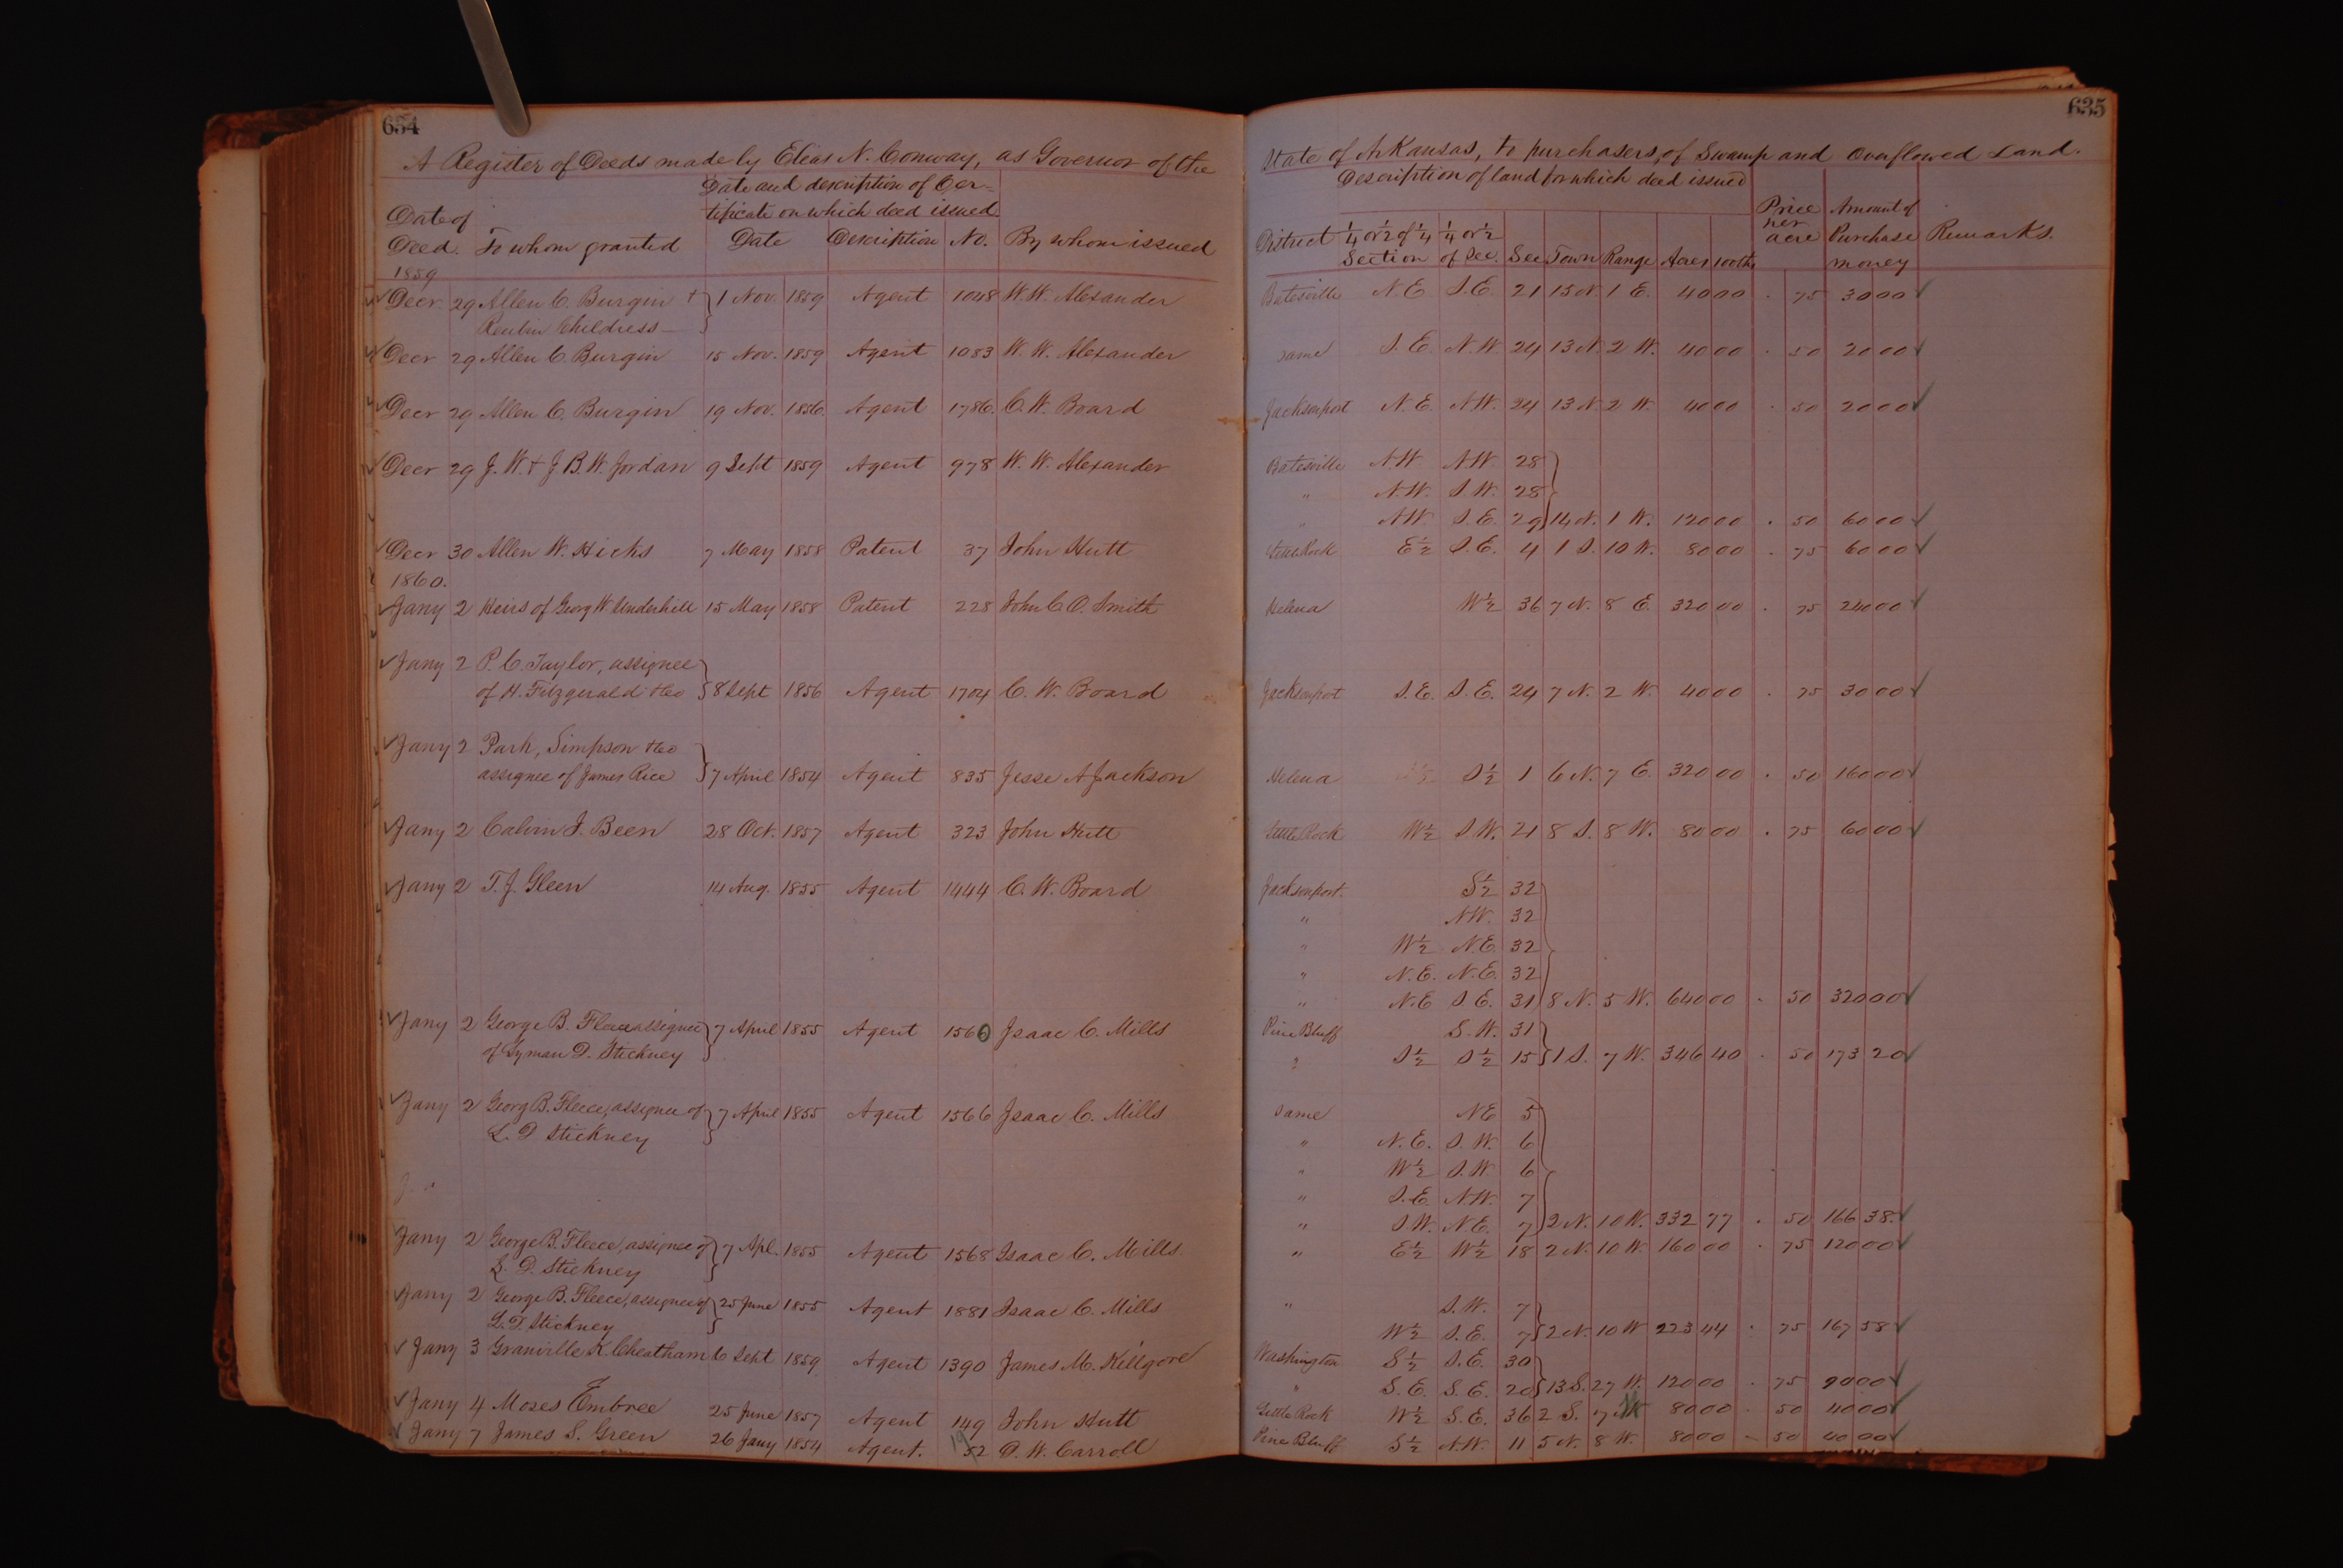 634
A Register of Deeds made by Elias N. Conway, as Governor of the
Date and description of Cer-
tificate on which deed issued.
Date of
Deed. To whom granted Date Description No. By whom issued
1859
Decr 29 Allen C. Burgin + 1 Nov. 1859 Agent 1048 W. W. Alexander
Reuben Childress
Decr 29 Allen C. Burgin 15 Nov. 1859 Agent 1083 W. W. Alexander
Decr 29 Allen C. Burgin 19 Nov. 1856 Agent 1786 C. W. Board
Decr 29 J. W. + J. B. W. Jordan 9 Sept 1859 Agent 978 W. W. Alexander
Decr 30 Allen W. Hicks 7 May 1858 Patent 37 John Hutt
1860.
Jany 2 Heirs of Georg W. Underhill 15 May 1858 Patent 228 John C. O. Smith
Jany 2 P. C. Taylor, assignee
of H. Fitzgerald &co 8 Sept 1856 Agent 1704 C. W. Board
Jany 2 Park, Simpson &co
assignee of James Rice 7 April 1854 Agent 835 Jesse A Jackson
Jany 2 Calvin J. Been 28 Oct. 1857 Agent 323 John Hutt
Jany 2 T. J. Gleen 14 Aug. 1855 Agent 1444 C. W. Board
Jany 2 George B. Fleece assignee 7 April 1855 Agent 1560 Isaac C. Mills
of Lyman D. Stickney
Jany 2 Georg B. Fleece, assignee of 7 April 1855 Agent 1566 Isaac C. Mills
L. D Stickney
Jany 2 George B. Fleece, assignee of 7 Apl. 1855 Agent 1568 Isaac C. Mills
L. D. Stickney
Jany 2 George B. Fleece, assignee of 25 June 1855 Agent 1881 Isaac C. Mills
L. D. Stickney
Jany 3 Granville K. Cheatham 6 Sept 1859 Agent 1390 James M. Killgore
Jany 4 Moses Embree 25 June 1857 Agent 149 John Hutt
Jany 7 James S. Green 26 Jany 1854 Agent. 52 D. W. Carroll
635
State of Arkansas, to purchasers, of Swamp and Overflowed Land.
Description of land for which deed issued
District 1/4 or 1/2 of 1/4 1/4 or 1/2 Price Amount of
per
acre Purchase Remarks.
Section of Sec. Sec Town Range Acres 100ths money
Batesville N. E. S. E. 21 13 N. 1 E. 40 00 . 75 30 00
same S. E. N. W. 24 13 N. 2 W. 40 00 . 50 20 00
Jacksonport N. E. N W. 24 13 N. 2 W. 40 00 . 50 20 00
Batesville N. W. N W. 28
" N. W. S W. 28
" N W. S. E. 29 14 N. 1 W. 120 00 . 50 60 00
Little Rock E 1/2 S. E. 4 1 S. 10 W. 80 00 . 75 60 00
Helena W 1/2 36 7 N. 8 E. 320 00 . 75 240 00
Jacksonport S. E. S. E. 24 7 N. 2 W. 40 00 . 75 30 00
Helena S 1/2 1 6 N. 7 E. 320 00 . 50 160 00
Little Rock W 1/2 S W. 21 8 S. 8 W. 80 00 . 75 60 00
Jacksonport. S 1/2 32
" N W. 32
" W 1/2 N. E. 32
" N. E. N. E. 32
" N. E S E. 31 8 N. 5 W. 640 00 . 50 320 00
Pine Bluff S. W. 31
" S 1/2 S 1/2 15 1 S. 7 W. 346 40 . 50 173 20
same N E 5
" N. E. S. W. 6
" W 1/2 S. W 6
" S. E N. W. 7
" S. W. N. E. 7 2 N. 10 W. 332 77 . 50 166 38.
" E 1/2 W 1/2 18 2 N. 10 W. 160 00 . 75 120 00
" S. W. 7
W 1/2 S. E. 7 2 N. 10 W 223 44 . 75 167 58
Washington S 1/2 S. E. 30
" S. E. S. E. 20 13 S. 27 W. 120 00 . 75 90 00
Little Rock W 1/2 S. E. 36 2 S. 7 W 80 00 . 50 40 00
Pine Bluff S 1/2 N. W. 11 5 N. 8 W. 80 00 - 50 40 00